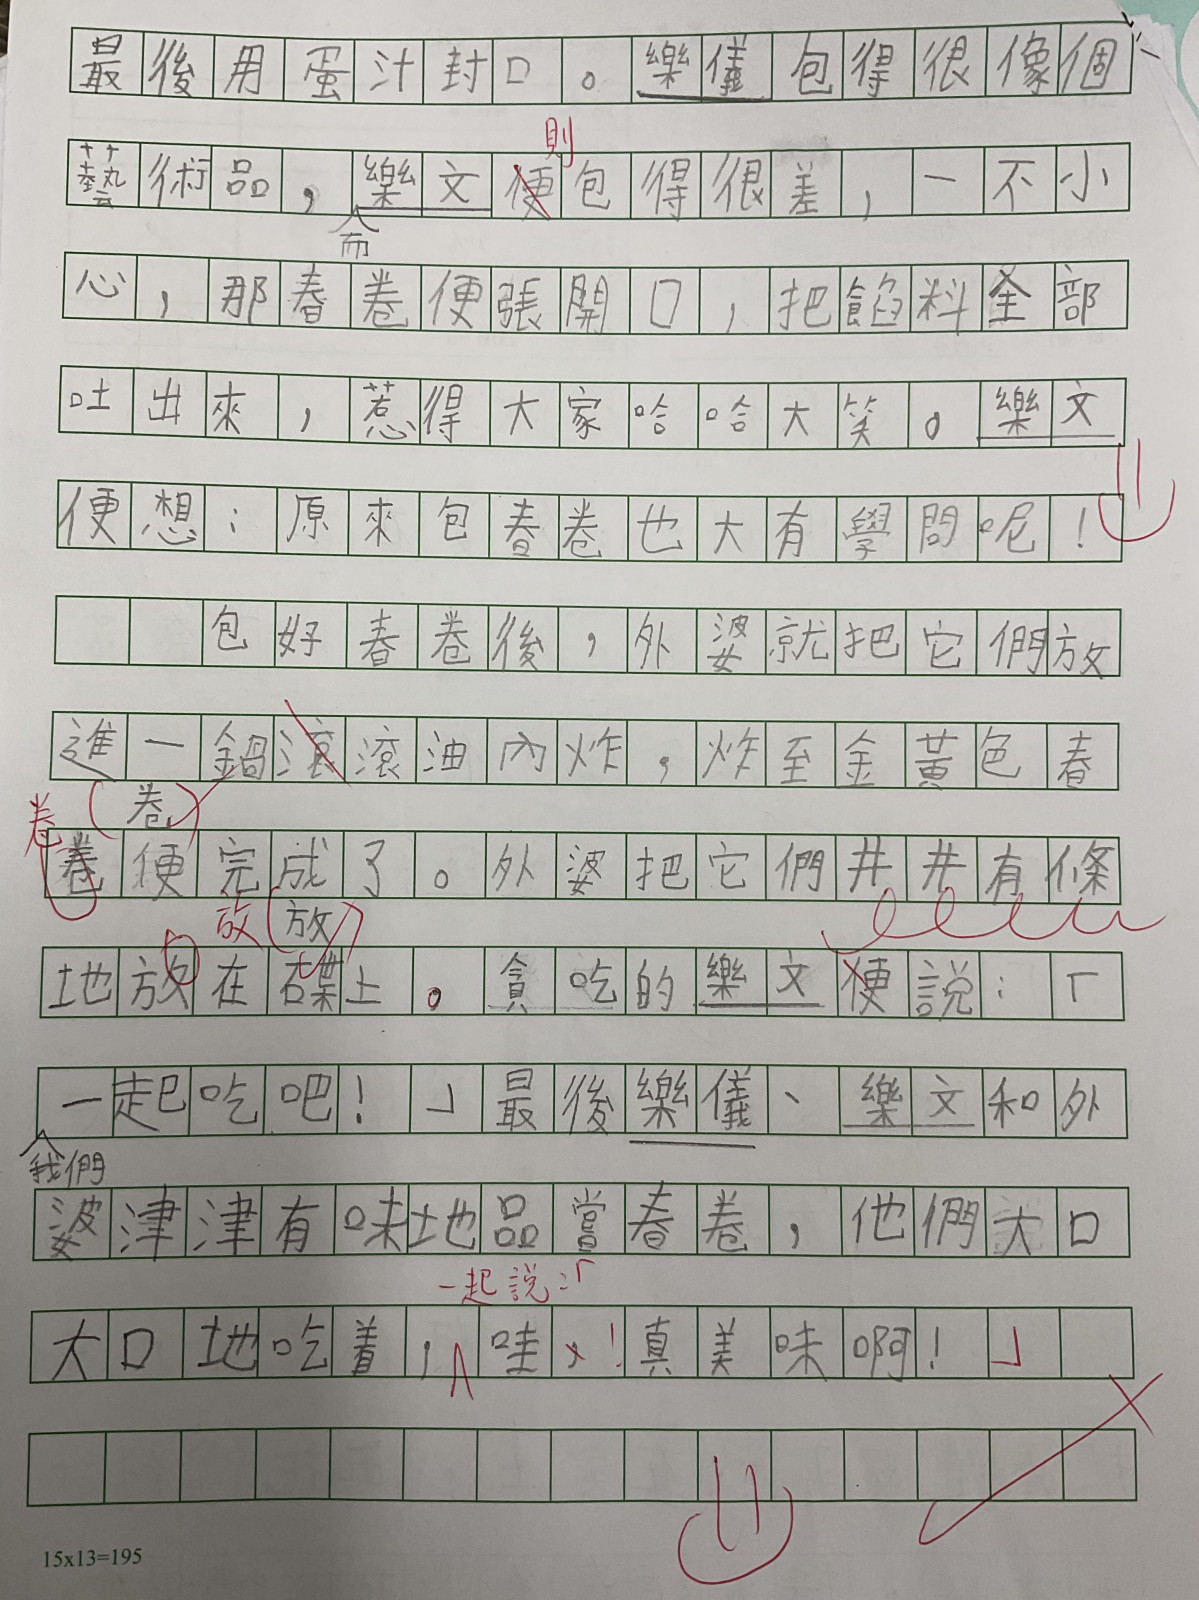 最後用蛋汁封口。樂儀包得很像個
則
藝術品，樂文便包得很差，一不小
而
心，那春卷便張開口，把餡料全部
吐出來，惹得大家哈哈大笑。樂文
便想：原來包春卷也大有學問呢！
包好春卷後，外婆就把它們放
進一鍋滾滾油內炸，炸至金黃色春
卷（卷）
卷便完成了。外婆把它們井井有條
放（放）
地放在碟上。貪吃的樂文便説：「
一起吃吧！」最後樂儀、樂文和外
我們
婆津津有味地品嘗春卷，他們大口
一起說：「
大口地吃着，哇，！真美味啊！」
15x13=195